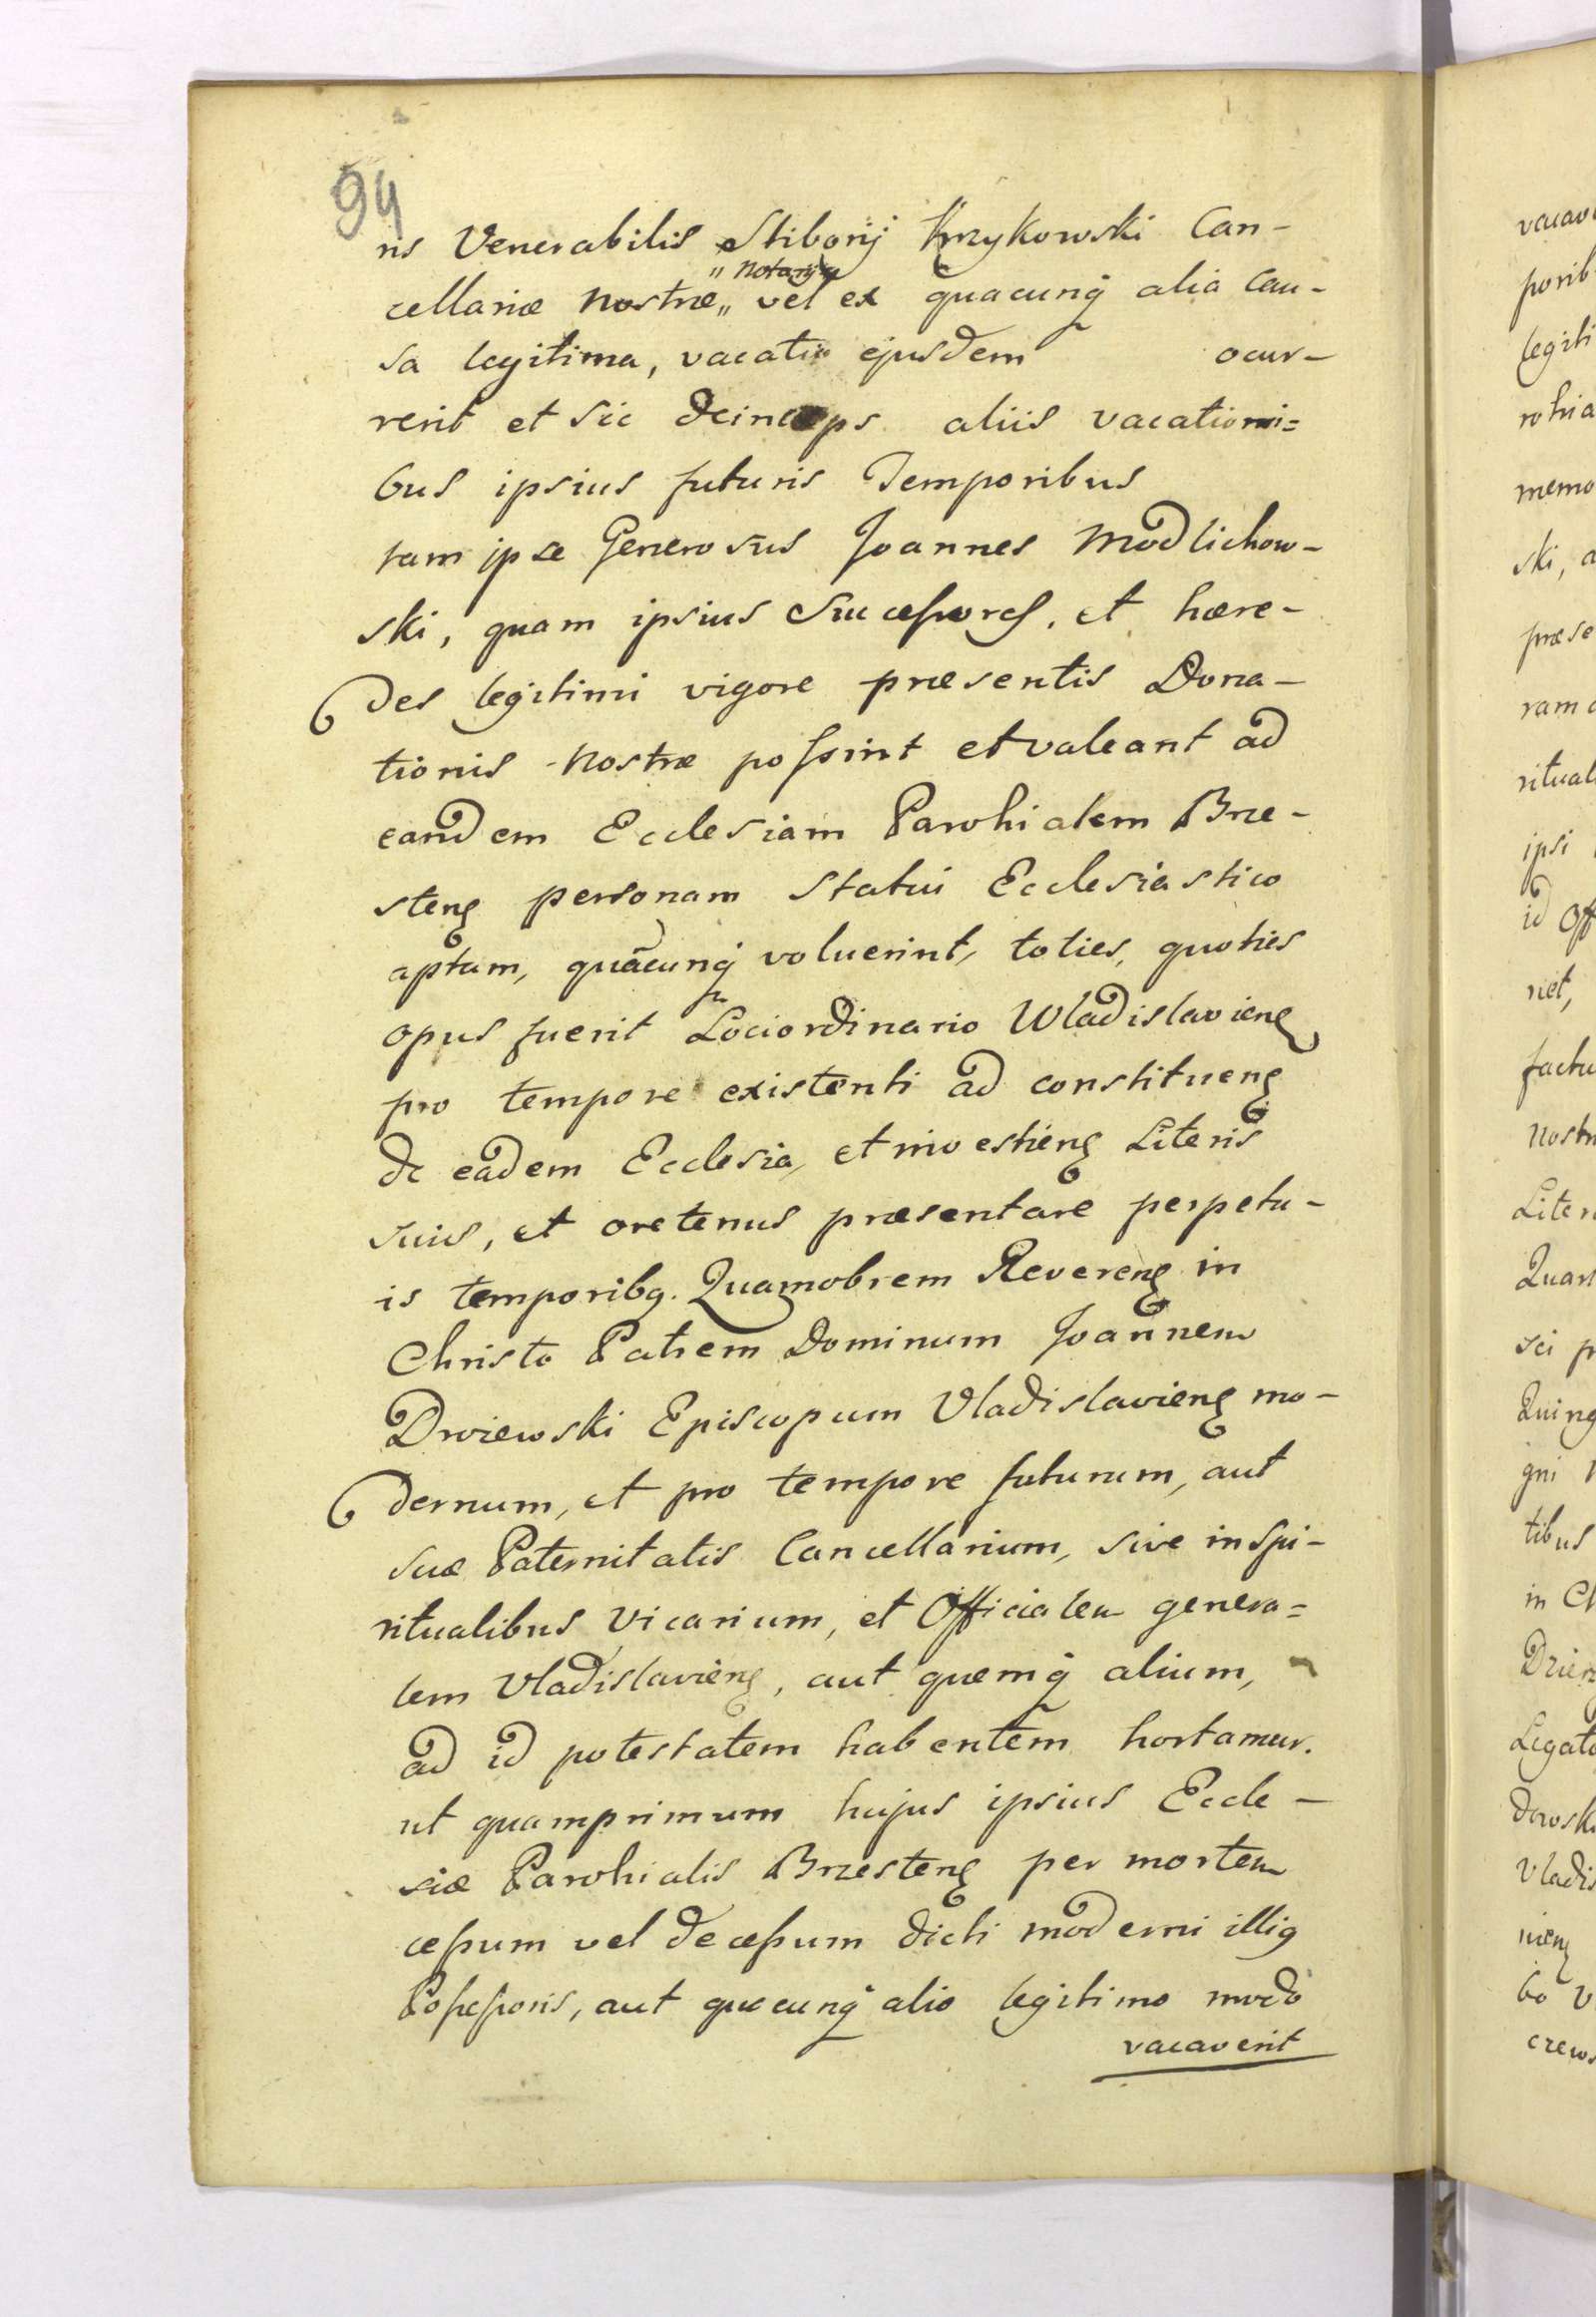 94
ris Venerabilis Stiborij Krzykowski Can-
„ Notarij
cellariæ Nostræ „ vel ex quacunq alia Cau-
sa legitima, vacatio ejusdem ocur-
rerit et sic deinceps aliis vacationi=
bus ipsius futuris Temporibus
tam ipse Generosus Joannes Modlichow-
ski, quam ipsius Sucessores, et hære-
des legitimi vigore præsentis Dona-
tionis Nostræ possint et valeant ad
eandem Ecclesiam Parohialem Brze-
steng personam Statui Ecclesiastico
aptam, quacunq voluerint, toties, quoties
opus fuerit Loci ordinario Wladislavieng
pro tempore existenti ad constitueng
de eadem Ecclesia, et investieng Literis
suis, et oretenus præsentare perpetu-
is temporibg. Quamobrem Revereng in
Christo Patrem Dominum Joannem
Drviewski Episcopum Vladislavieng mo-
dernum, et pro tempore futurum, aut
suæ Paternitatis Cancellarium, sive in Spi-
ritualibus Vicarium, et Officialem genera=
lem Vladislavieng, aut quemq alium,
ad id potestatem habentem hortamur.
ut quamprimum hujus ipsius Eccle-
siæ Parohialis Brzesteng per mortem
cessum vel decessum dicti moderni illig
Possessoris, aut quocunq alio legitimo modo
vacaverit